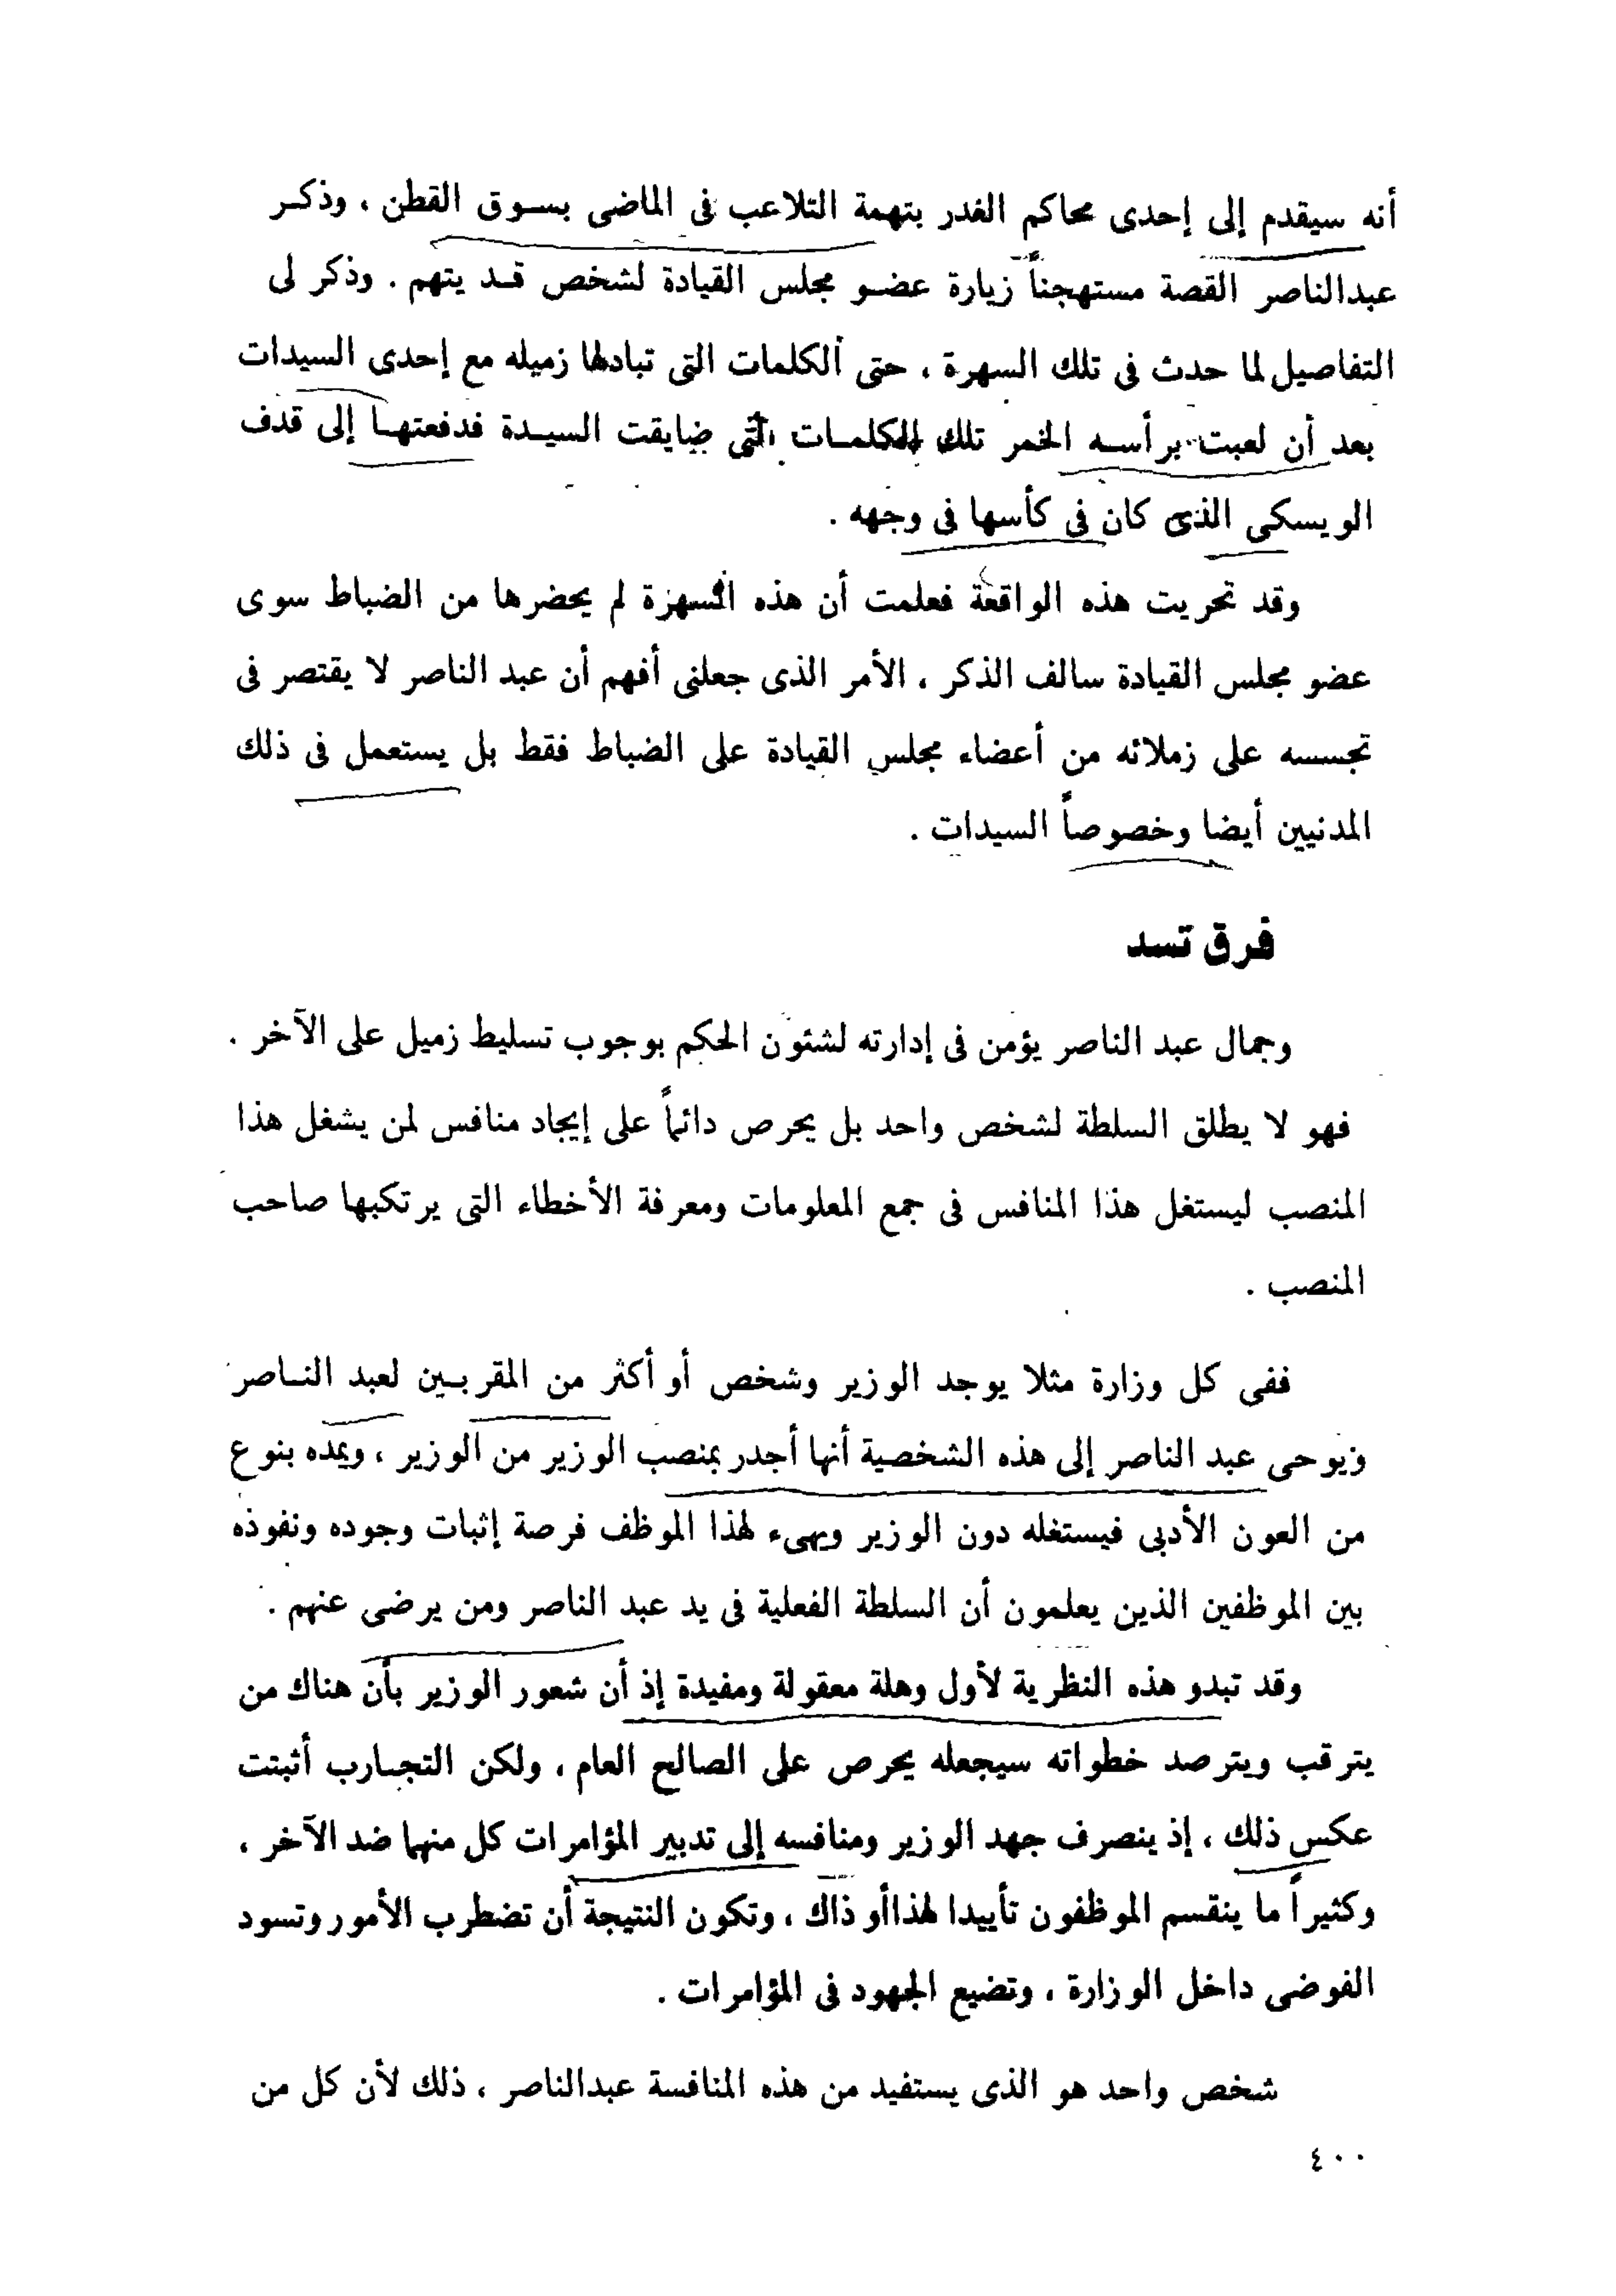 أنه سيقدم إلى إحدى محاكم الغدر بتهمة التلاعب فى الماضى بسوق القطن ، وذكر
عبدالناصر القصة مستهجناً زيارة عضو مجلس القيادة لشخص قد يتهم . وذكر لى
التفاصيل لما حدث فى تلك السهرة ، حتى الكلمات التى تبادلها زميله مع إحدى السيدات
بعد أن لعبت برأسه الخمر تلك الكلمات التى ضايقت السيدة فدفعتها إلى قذف
الويسكى الذى كان فى كأسها فى وجهه .
وقد تحريت هذه الواقعة فعلمت أن هذه السهرة لم يحضرها من الضباط سوى
عضو مجلس القيادة سالف الذكر ، الأمر الذى جعلنى أفهم أن عبد الناصر لا يقتصر فى
تجسسه على زملائه من أعضاء مجلس القيادة على الضباط فقط بل يستعمل فى ذلك
المدنيين أيضا وخصوصاً السيدات .
فرق تسد
وجمال عبد الناصر يؤمن فى إدارته لشئون الحكم بوجوب تسليط زميل على الآخر .
فهو لا يطلق السلطة لشخص واحد بل يحرص دائماً على إيجاد منافس لمن يشغل هذا
المنصب ليستغل هذا المنافس فى جمع المعلومات ومعرفة الأخطاء التى يرتكبها صاحب
المنصب .
ففى كل وزارة مثلا يوجد الوزير وشخص أو أكثر من المقربين لعبد الناصر
ويوحى عبد الناصر إلى هذه الشخصية أنها أجدر بمنصب الوزير من الوزير ، ويمده بنوع
من العون الأدبى فيستغله دون الوزير ويهىء لهذا الموظف فرصة إثبات وجوده ونفوذه
بين الموظفين الذين يعلمون أن السلطة الفعلية فى يد عبد الناصر ومن يرضى عنهم .
وقد تبدو هذه النظرية لأول وهلة معقولة ومفيدة إذ أن شعور الوزير بأن هناك من
يترقب ويترصد خطواته سيجعله يحرص على الصالح العام ، ولكن التجارب أثبتت
عكس ذلك ، إذ ينصرف جهد الوزير ومنافسه إلى تدبير المؤامرات كل منهما ضد الآخر ،
وكثيراً ما ينقسم الموظفون تأييدا لهذا أو ذاك ، وتكون النتيجة أن تضطرب الأمور وتسود
الفوضى داخل الوزارة ، وتضيع الجهود فى المؤامرات .
شخص واحد هو الذى يستفيد من هذه المنافسة عبدالناصر ، ذلك لأن كل من
٤٠٠